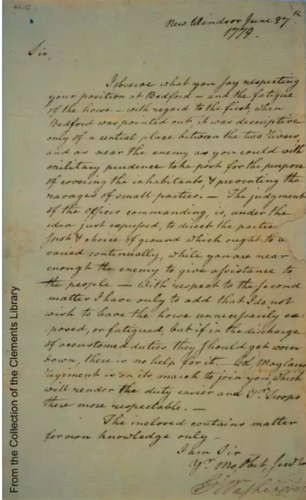 New Windsor June 27th
1779.
Sir,
I observe what you say respecting
your position at Bedford — and the fatigue
of the horse — with regard to the first, when
Bedford was pointed out it was descriptive
only of a central place between the two rivers
and as near the enemy as you could with
military prudence take post for the purpose
of covering the inhabitants, & preventing the
ravages of small parties. — The judgment
of the Officer commanding, is, under the
idea just expressed, to direct the particular
spot & choice of ground which ought to be
varied continually, while you are near
enough the enemy to give assistance to
the people — With respect to the second
matter I have only to add that I do not
wish to have the horse unnecessarily ex-
posed, or fatigued, but if in the discharge
of accustomed duties they should get worn
down, there is no help for it. — Col. Moylans
regiment is on its march to join you, which
will render the duty easier and Yr. Troops
there more respectable. —
The inclosed contains matter
for own knowledge only —
I am Sir
Yr. Mo. Obt. Servt.
Go Washington
From the Collection of the Clements Library